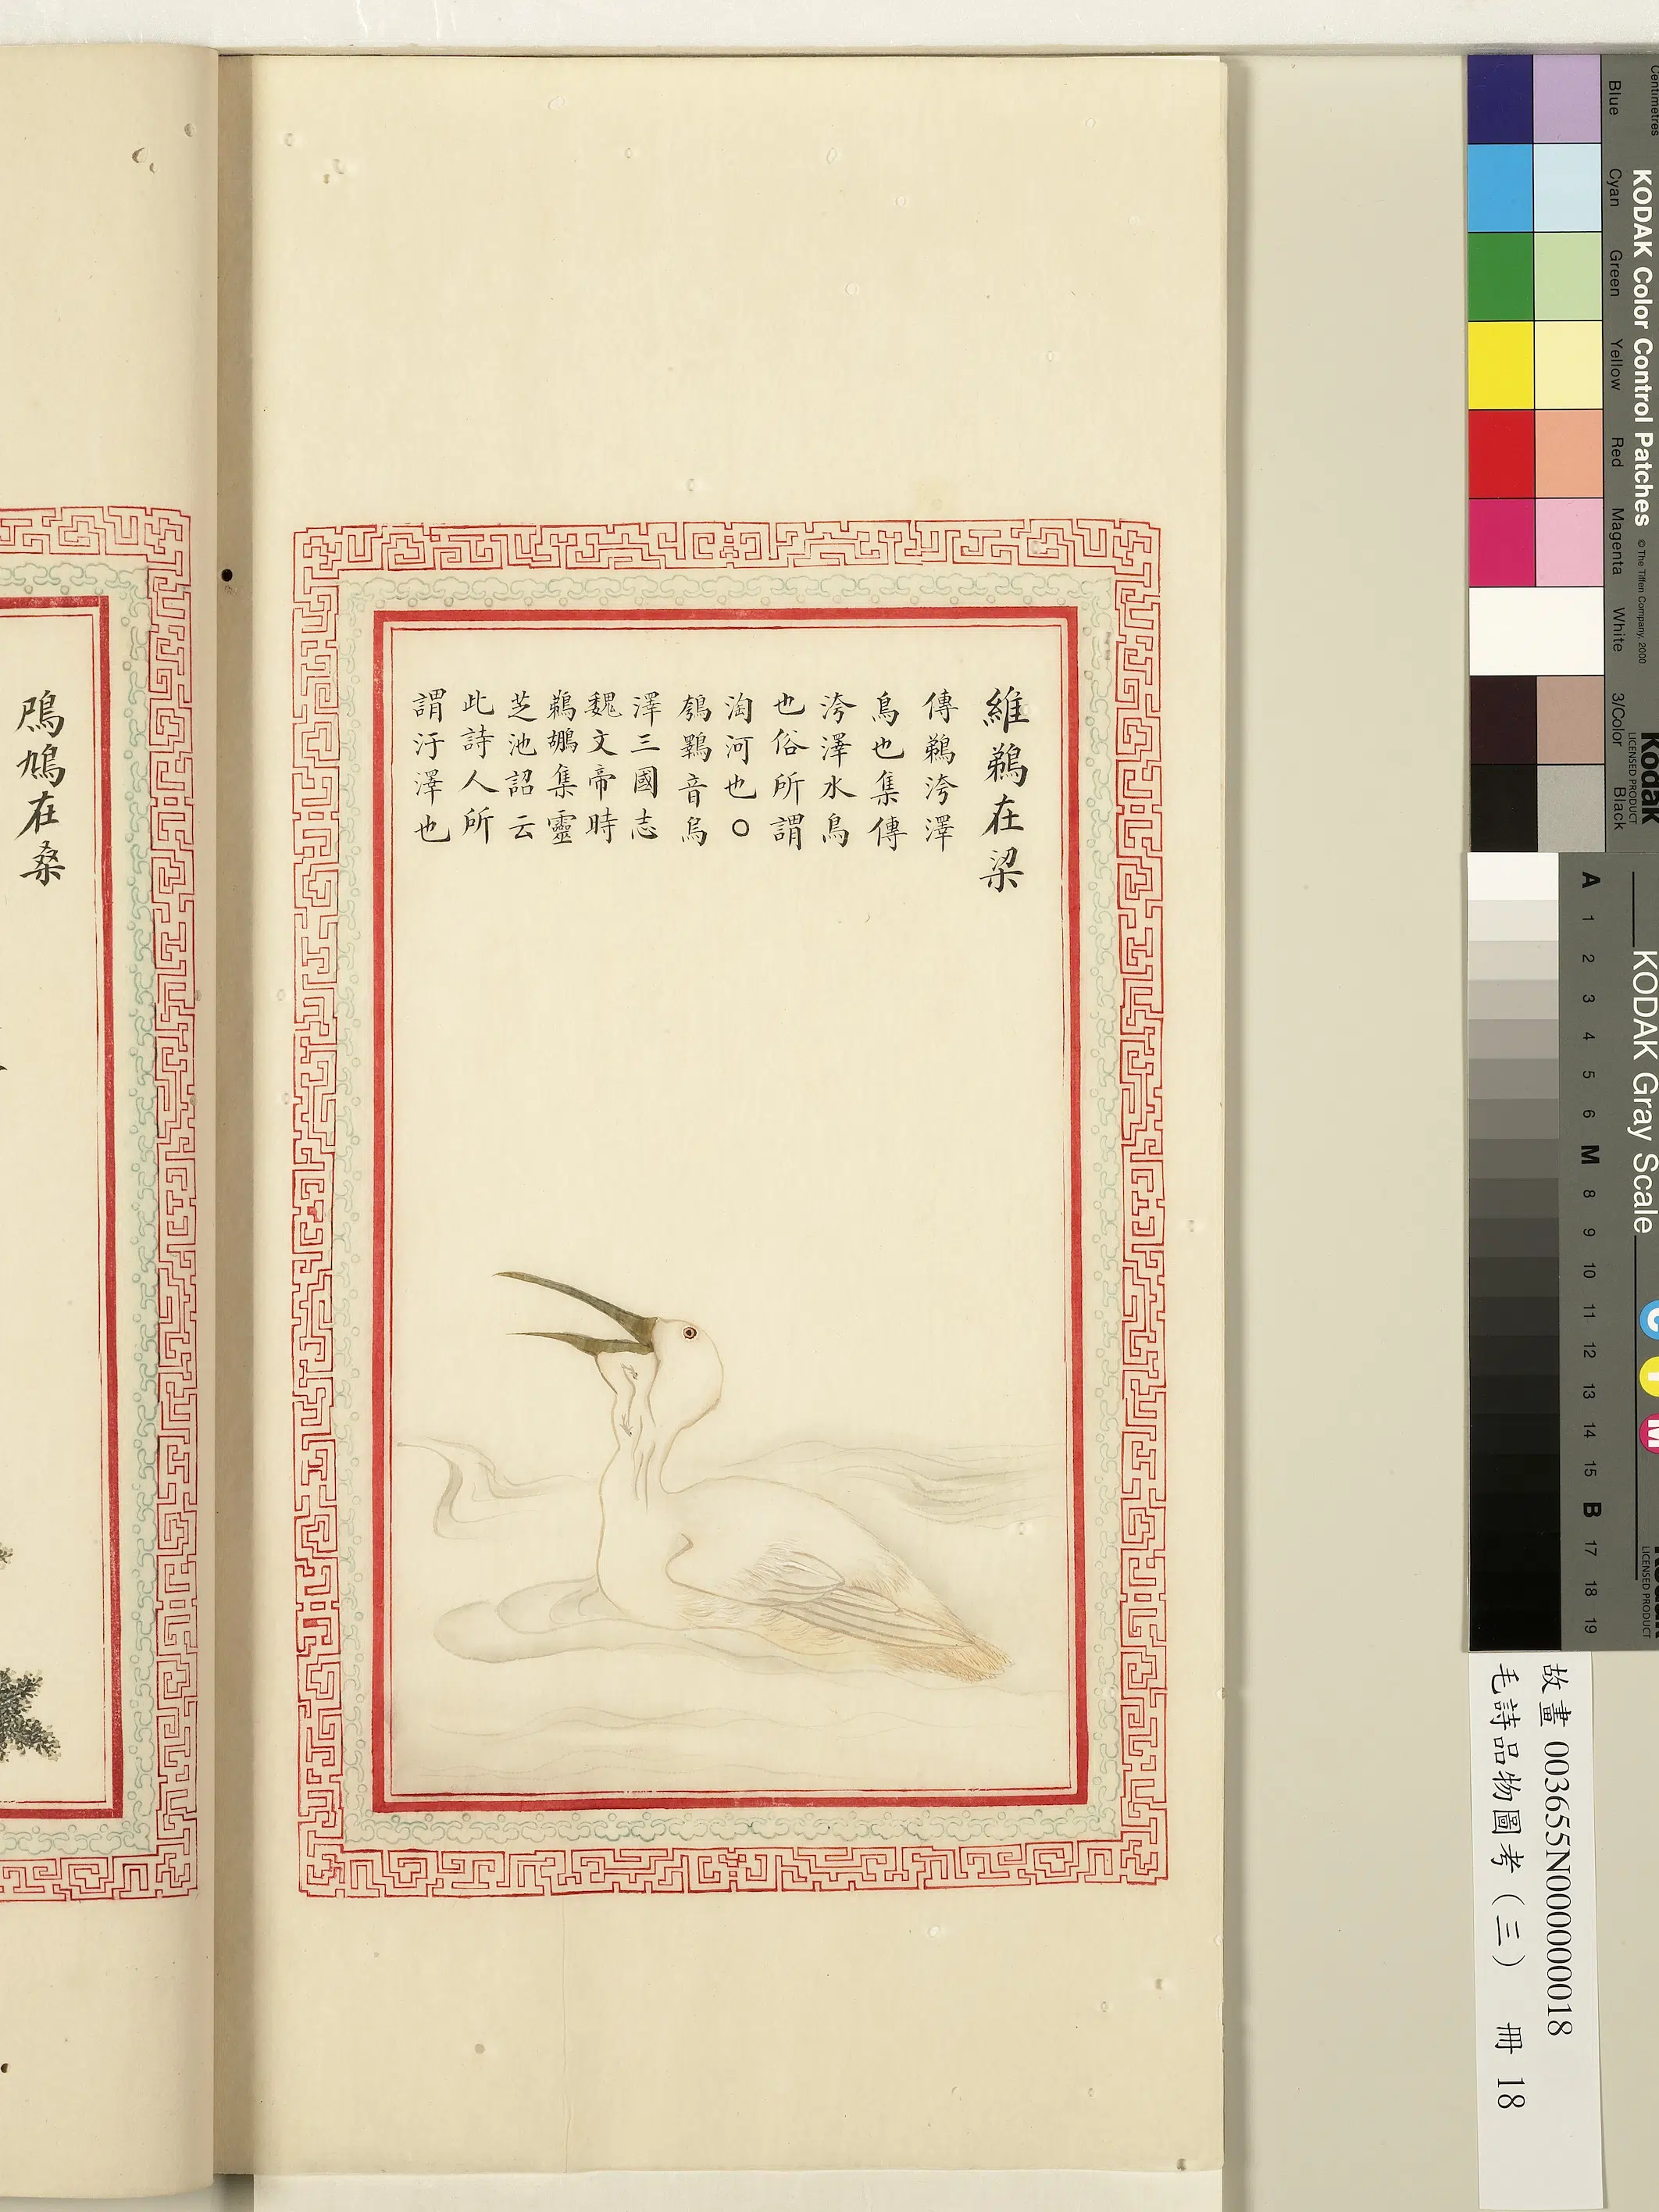 維鵜在梁
傳鵜洿澤
鳥也集傳
洿澤水鳥
也俗所謂
淘河也○
鴮鸅音烏
澤三國志
魏文帝時
鵜鶘集靈
芝池詔云
此詩人所
謂汙澤也
鳲鳩在桑
Centimetres
Blue
Cyan
Green
Yellow
Red
Magenta
White
3/Color
Black
KODAK Color Control Patches
© The Tiffen Company, 2000
Kodak
LICENSED PRODUCT
KODAK Gray Scale
A 1 2 3 4 5 6 M 8 9 10 11 12 13 14 15 B 17 18 19
C Y M
LICENSED PRODUCT
故畫 003655N000000018
毛詩品物圖考（三） 冊 18